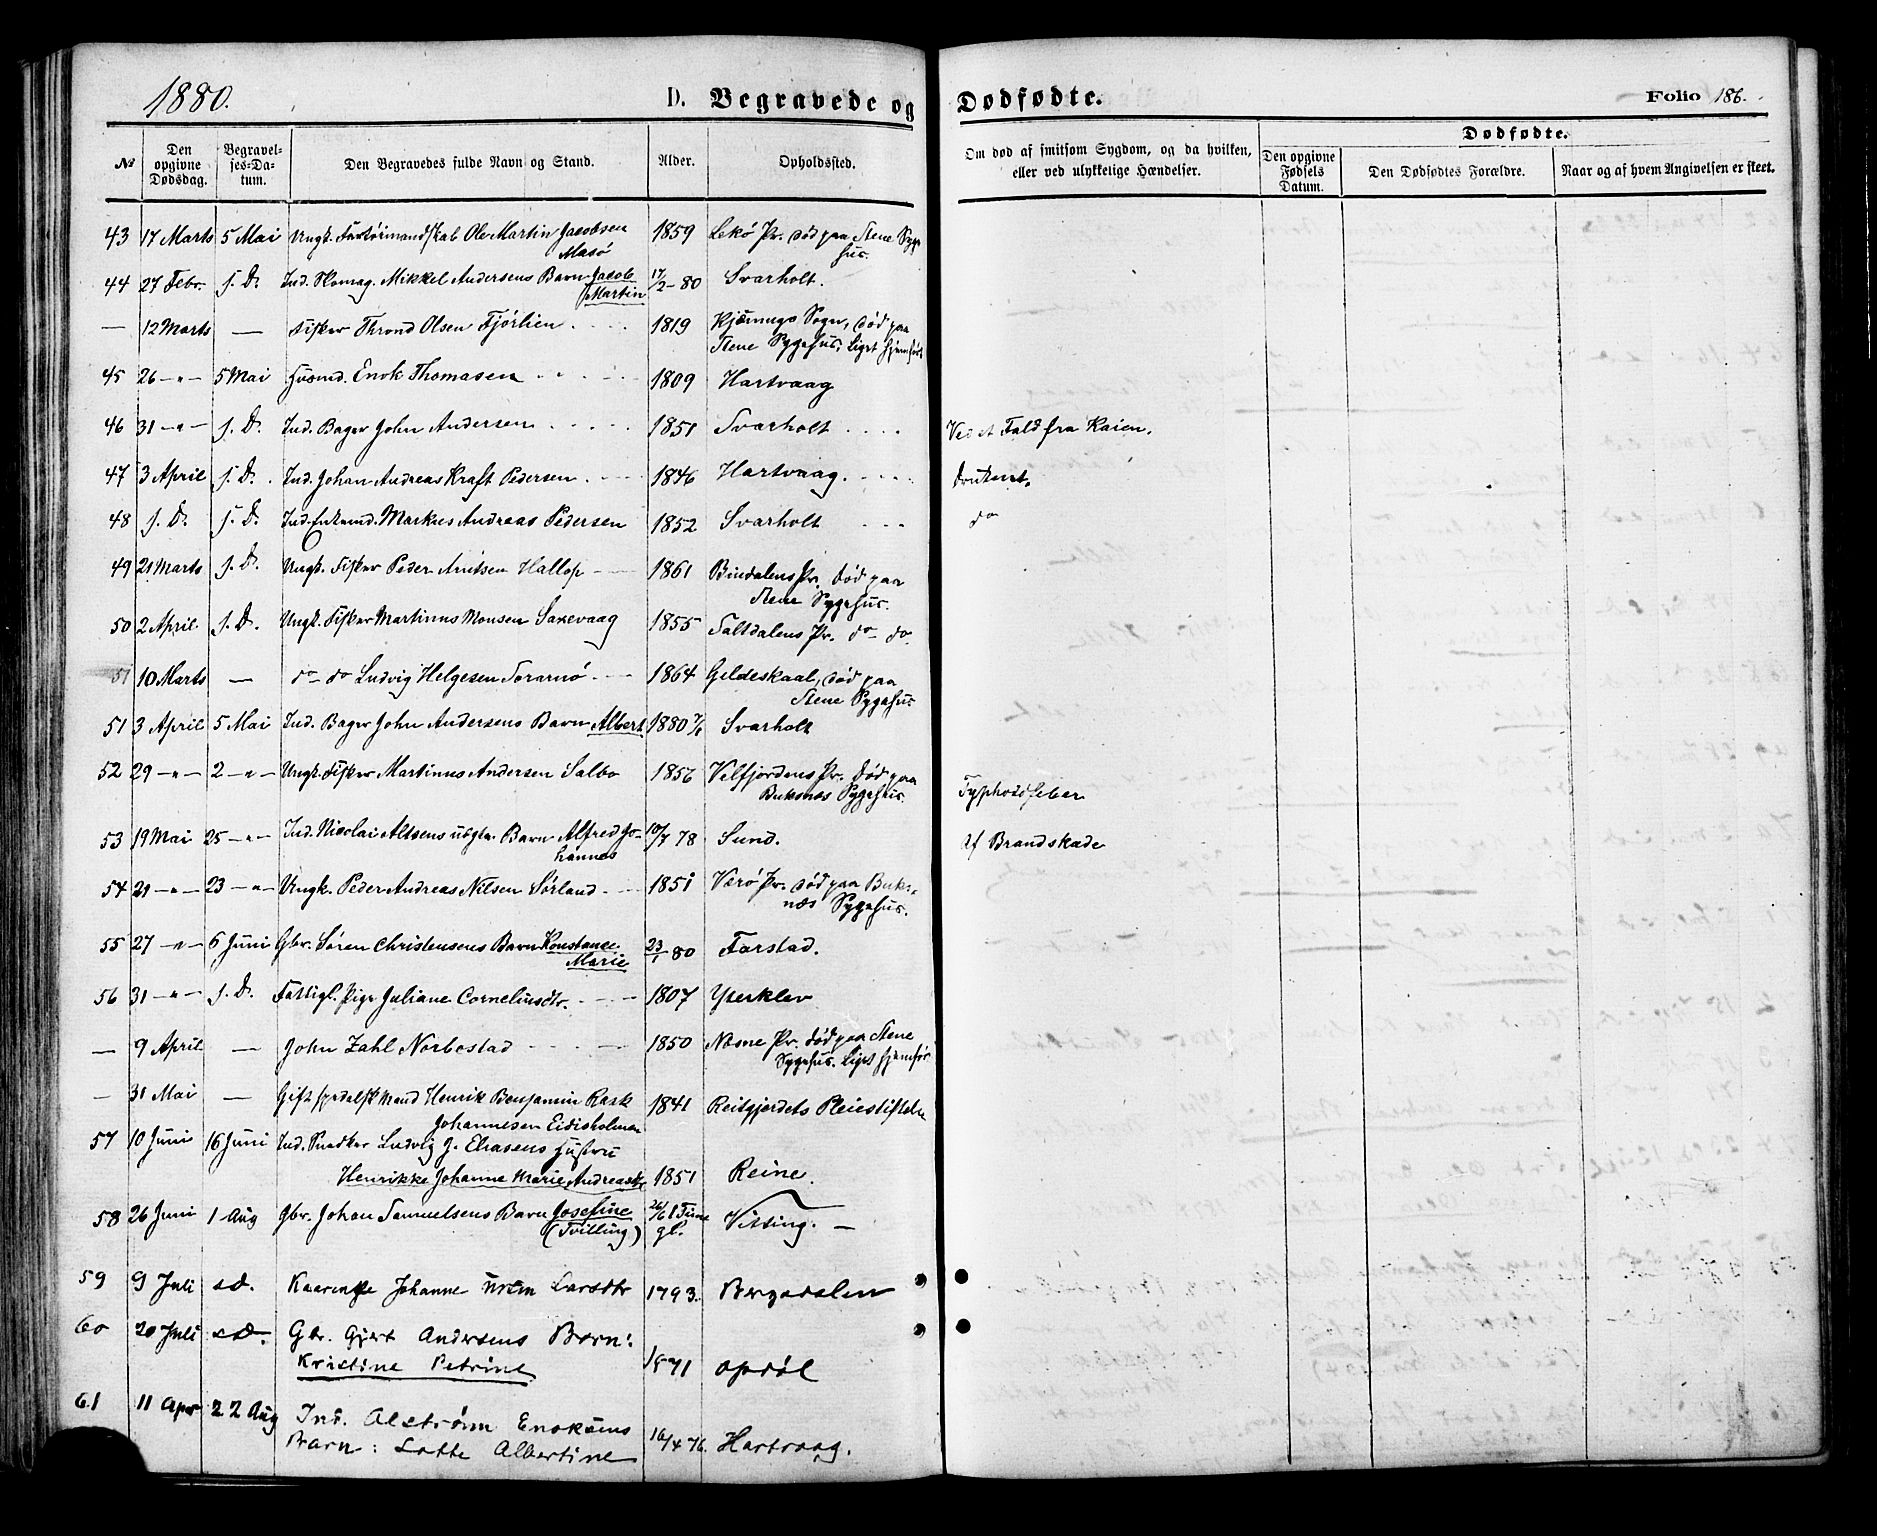 1880.
D. Begravede og Dødfødte.
Folio 186.
№ Den opgivne Dødsdag. Begravelses-Datum. Den Begravedes fulde Navn og Stand. Alder. Opholdssted. Om død af smitsom Sygdom, og da hvilken, eller ved ulykkelige Hændelser. Dødfødte.
Den opgivne Fødsels Datum. Den Dødfødtes Forældre. Naar og af hvem Angivelsen er skeet.
43 17 Marts 5 Mai Ungk. Ole Martin Jacobsen 1859 Lekö Pr. död paa Stene Syge
Masö hus.
44 27 Febr. s. D. Ind. Skomag. Mikkel Andersens Barn Jacob 17/2-80 Svarholt.
Martin
— 12 Marts — Fisker Thrond Olsen Fjörlien 1819 Sogn, död paa
Stene Sygehus, Liget hjemfört
45 26 -"- 5 Mai Husmd. Enok Thomasen 1809 Hartvaag
46 31 -"- s. D. Ind. Bager John Andersen 1851 Svarholt Ved et Fald fra Kaien.
47 3 April s. D. Ind. Johan Andreas Kraft Pedersen 1846 Hartvaag Druknet.
48 s. D. s. D. Ind. Enkemd. Markus Andreas Pedersen 1852 Svarholt do
49 21 Marts s. D. Ungk. Fisker Peder Hallop 1861 Bindalens Pr. död paa
Stene Sygehus.
50 2 April s. D. Ungk. Fisker Martinus Monsen Saxevaag 1855 Saltdalens Pr. do do
51 10 Marts — do do Ludvig Helgesen Sörarnö 1864 Gildeskaal, död paa
Stene Sygehus
51 3 April 5 Mai Ind. Bager John Andersens Barn Albert 1880 7/1 Svarholt
52 29 -"- 2 -"- Ungk. Fisker Martinus Andersen Salbo 1856 Velfjordens Pr. död paa
Buksnes Sygehus. Typhoidfeber
53 19 Mai 25 -"- Ind. Nicolai Altsens uægte Barn Alfred Jo- 10/7 78 Sund. Af Brandskade
hannes
54 21 -"- 23 -"- Ungk. Peder Andreas Nilsen Sörland 1851 Værö Pr. död paa Buks-
næs Sygehus.
55 27 -"- 6 Juni Gbr. Sören Christensens Barn Konstance 23/1 80 Farstad.
Marie
56 31 -"- s. D. Fattigl. Pige Juliane Corneliusdtr. 1807 Yterklev
— 9 April — John Zahl Norbostad 1850 Næsne Pr. död paa Stene
Sygehus. Liget hjemför
— 31 Mai — Gift spedalsk Mand Henrik Benjamin Rask 1841 Reitgjerdets Pleiestiftelse
Johannesen Eidisholmen
57 10 Juni 16 Juni Ind. Snedker Ludvig J. Eliasens Hustru
Henrikke Johanne Marie Andreasdtr 1851 Reine.
58 26 Juni 1 Aug Gbr. Johan Samuelsens Barn Josefine 26/6 1 Time Vitting.
(Tvilling) gl.
59 9 Juli s.D. Johanne Larsdtr 1793. Bergsdalen
60 20 Juli s.D. Gbr. Gjert Andersens Barn:
Kristine Petrine 1871 Opdöl
61 11 Apr 22 Aug Ind. Alström Enoksens
Barn: Lotte Albertine 16/4 76. Hartvaag.